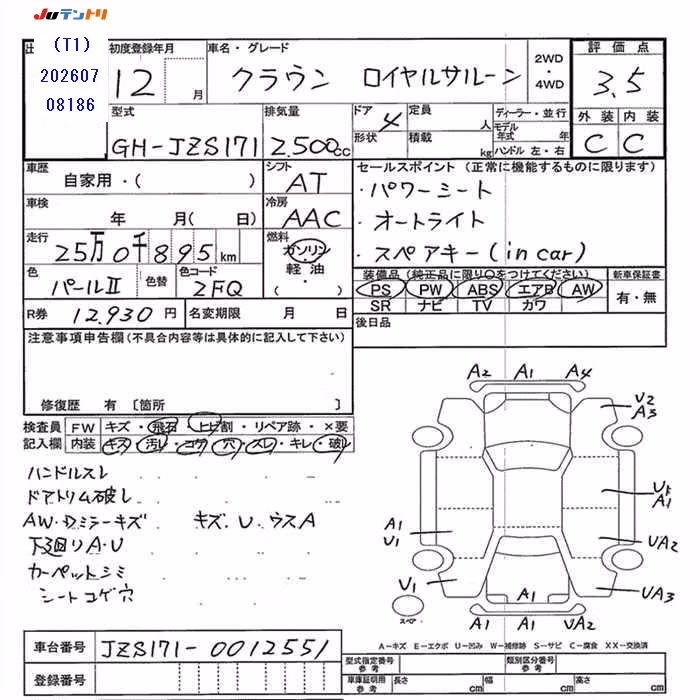 Juテントリ
(T1)
202607
08186
初度登録年月 車名・グレード 2WD・4WD 評価点
12月 クラウン ロイヤルサルーン 3.5
型式 排気量 ドア 4 定員 人 ディーラー・並行 外装 内装
GH-JZS171 2.500cc 形状 積載 kg モデル年式 年 ハンドル 左・右 C C
車歴 シフト セールスポイント (正常に機能するものに限ります)
自家用・( ) AT ・パワーシート
車検 冷房 ・オートライト
年 月( 日) AAC ・スペアキー(in car)
走行 燃料
25万0千895km ガソリン
軽油
( ・ )
色 色替 色コード 装備品 (純正品に限り○をつけてください) 新車保証書
パールII 2FQ PS PW ABS エアB AW 有・無
SR ナビ TV カワ
R券 12,930円 名変期限 月 日 後日品
注意事項申告欄 (不具合内容等は具体的に記入して下さい)
修復歴 有 〔箇所 〕
検査員 FW キズ・飛石・ヒビ割・リペア跡・×要
記入欄 内装 キズ・汚レ・コゲ・穴・スレ・キレ・破レ
ハンドルスレ
ドアトリム破レ
AW・Dミラーキズ キズ、U、ウスA
下廻りA・U
カーペットシミ
シートコゲ穴
A2 A1 A4
U2
A3
U1
A1
A1
U1
UA2
U1
UA3
スペアー
A1 A1 UA2
A-キズ E-エクボ U-凹み W-補修跡 S-サビ C-腐食 XX-交換済
車台番号 JZS171-0012551
型式指定番号 参考 類別区分番号 参考
登録番号
車庫証明用 参考 長さ cm 幅 cm 高さ cm